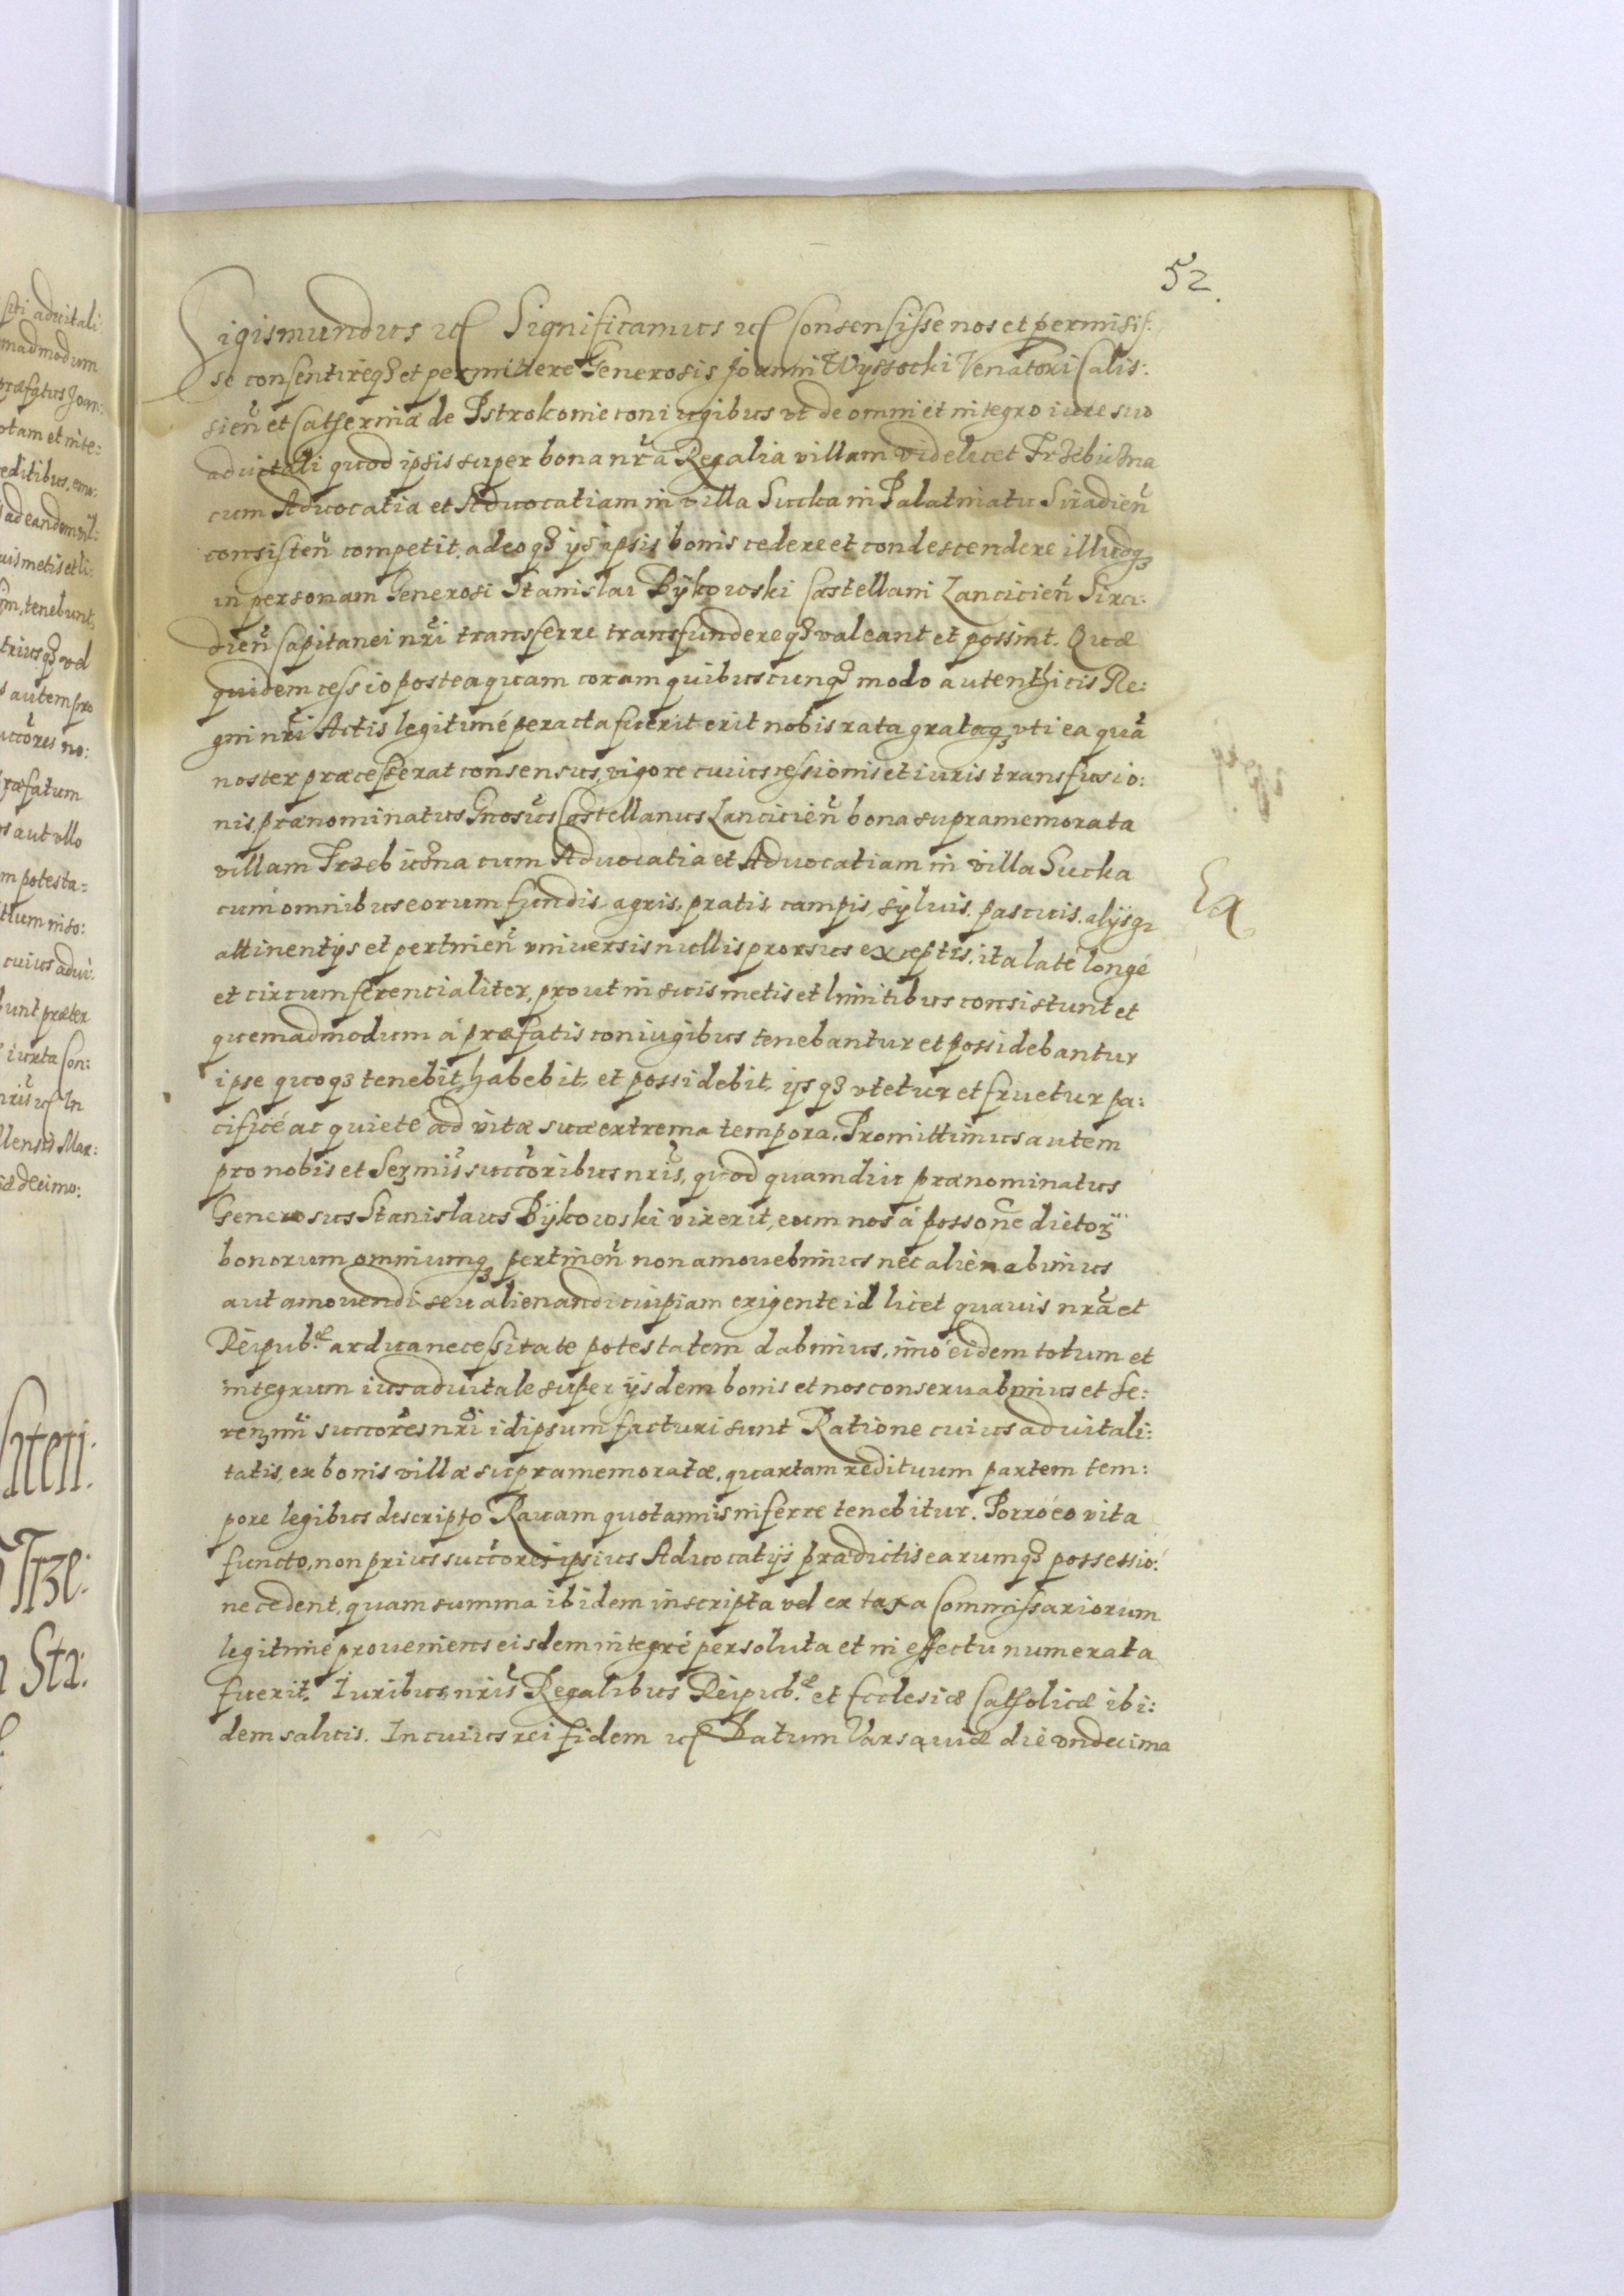 52.
Sigismundus etc Significamus etc Consensisse nos et permisis:
se consentireq3 et permittere Generosis Joanni Wyssocki Venatori Calis:
sien̄ et Catherinæ de Pstrokonie coniugibus vt de omni et integro iure suo
aduitali quod ipsis super bona nr̄a Regalia villam videlicet Trzebiczna
cum Aduocatia et Aduocatiam in villa Sucka in Palatinatu Siradien̄
consisten̄ competit, adeoq3 ijs ipsis bonis cedere et condescendere illudq3
in personam Generosi Stanislai Bÿkowski Castellani Lancicien̄ Sira:
dien̄ Capitanei nr̄i transferre transfundereq3 valeant et possint. Quæ
quidem cessio posteaquam coram quibuscunq3 modo autenthicis Re:
gni nr̄i Actis legitimé peracta fuerit erit nobis rata grataq3 vti ea quā
noster præcesserat consensus, vigore cuius cessionis et iuris transfusio:
nis, prænominatus Gnosūs Castellanus Lancicien̄ bona supramemorata
villam Trzebiczna cum Aduocatia et Aduocatiam in villa Sucka
cum omnibus eorum fundis, agris, pratis, campis, sÿluis, pascuis, alijsq3
attinentijs et pertinen̄ vniuersis nullis prorsus exceptis, ita late longé
et circumferencialiter, prout in suis metis et limitibus consistunt et
quemadmodum á præfatis coniugibus tenebantur et possidebantur
ipse quoq3 tenebit, habebit, et possidebit, ijsq3 vtetur et fruetur pa:
cificé ac quieté ad vitæ suæ extrema tempora. Promittimus autem
pro nobis et Sermīs succōribus nrīs, quod quamdiu prænominatus
Generosus Stanislaus Bÿkowski vixerit, eum nos á possōne dictor3
bonorum omniumq3 pertinen̄ non amouebimus nec alienabimus
aut amouendi seu alienandi cuipiam exigente id licet quauis nrā et
Reipub.æ ardua necessitate potestatem dabimus, imó eidem totum et
integrum ius aduitale super ijsdem bonis et nos conseruabimus et Se:
renm̄i succōres nr̄i id ipsum facturi sunt Ratione cuius aduitali:
tatis, ex bonis villæ supramemoratæ, quartam redituum partem tem:
pore legibus descripto Rauam quotannis inferre tenebitur. Porró eo vita
functo, non prius succōres ipsius Aduocatijs prædictis earumq3 possessio:
ne cedent, quam summa ibidem inscripta vel ex taxa Commissariorum
legitimé proueniens eisdem integré persoluta et in effectu numerata
fuerit. Iuribus nrīs Regalibus Reipub.æ et Ecclesiæ Catholicæ ibi:
dem saluis. In cuius rei fidem etc Datum Varsauiæ die vndecima